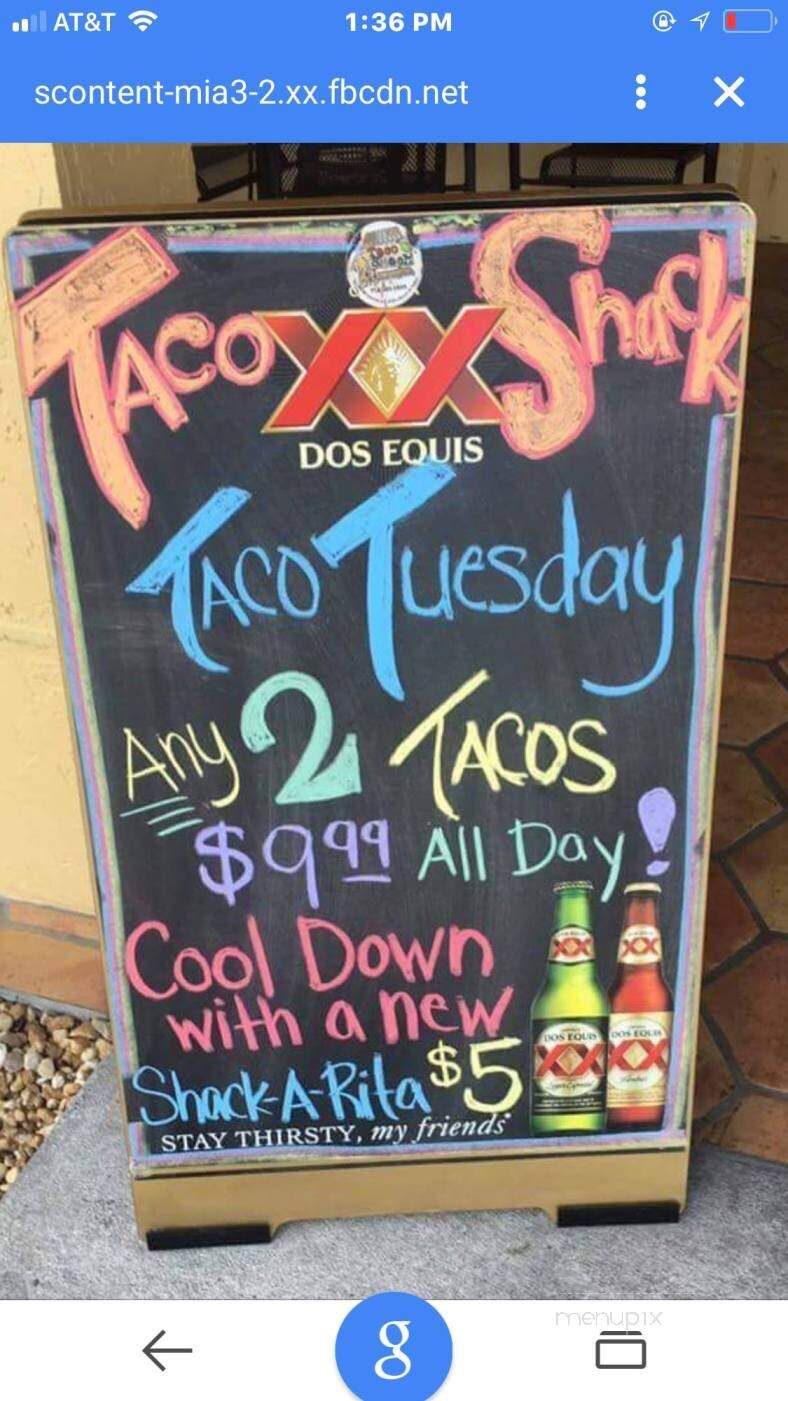 AT&T 1:36 PM
scontent-mia3-2.xx.fbcdn.net
TACO XX Shack
DOS EQUIS
TACO Tuesday
Any 2 TACOS
$9.99 All Day!
Cool Down
with a new
Shack-A-Rita $5
STAY THIRSTY, my friends
XX XX
DOS EQUIS DOS EQUIS
XX XX
g
menupix